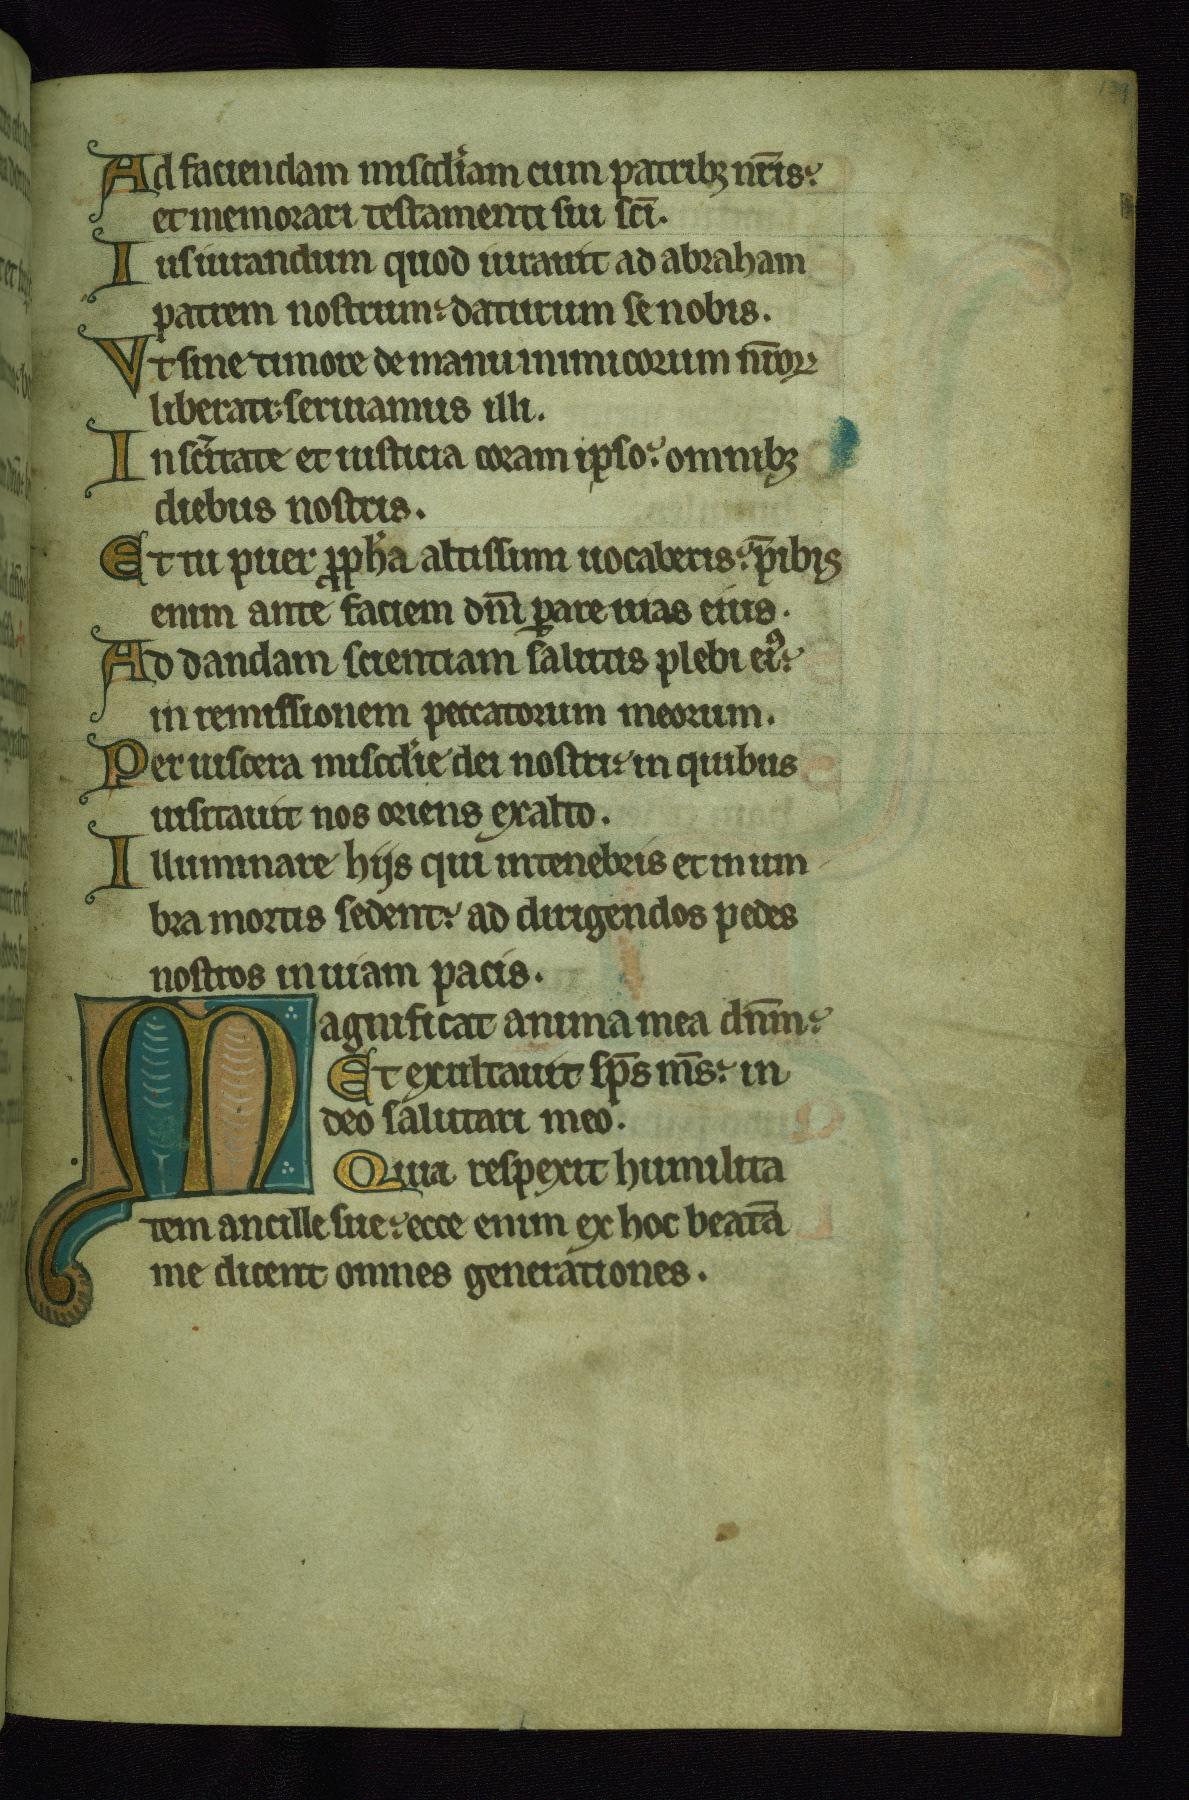 Ad faciendam miscdiam cum patribꝫ nris:
et memorari testamenti sui sci.
Iusiurandum quod iurauit ad abraham
patrem nostrum: daturum se nobis.
Vt sine timore de manu inimicorum nroꝝ
liberati: seruiamus illi.
In scitate et iusticia coram ipso: omnibꝫ
diebus nostris.
Et tu puer ꝓpha altissimi uocaberis: pibis
enim ante faciem dni ꝑare uias eius.
Ad dandam scientiam salutis plebi eiꝰ:
in remissionem peccatorum meorum.
Per uiscera miscdie dei nostri: in quibus
uisitauit nos oriens exalto.
Illuminare hijs qui intenebris et in um
bra mortis sedent: ad dirigendos pedes
nostros in uiam pacis.
Magnificat anima mea dnm:
Et exultauit sps ms: in
deo salutari meo.
Quia respexit humilita
tem ancille sue: ecce enim ex hoc beatā
me dicent omnes generationes.